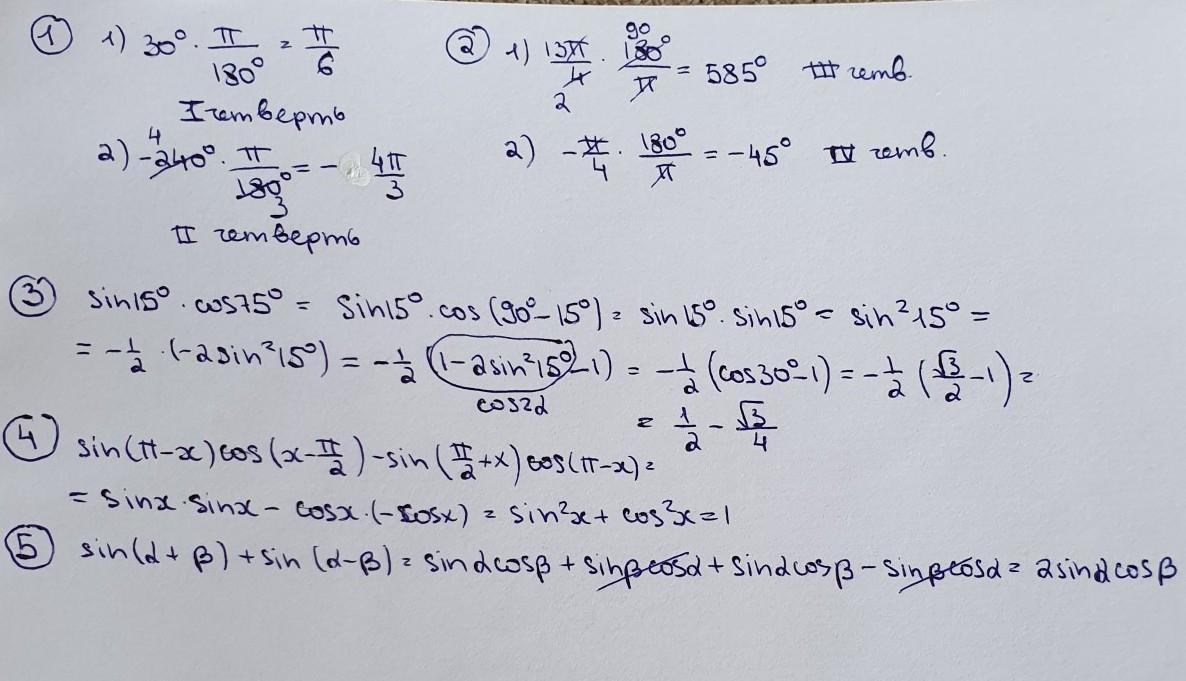 ① 1) 30° · π/180° = π/6
I четверть
2) -240° · π/180° = - 4π/3
4
3
II четверть
② 1) 13π/4 · 180°/π = 585° III четв.
90
2
2) -π/4 · 180°/π = -45° IV четв.
③ sin15° · cos75° = sin15° · cos(90° - 15°) = sin15° · sin15° = sin²15° =
= -1/2 · (-2sin²15°) = -1/2 (1 - 2sin²15° - 1) = -1/2 (cos30° - 1) = -1/2 (√3/2 - 1) =
cos2α
= 1/2 - √3/4
④ sin(π-x)cos(x-π/2) - sin(π/2+x)cos(π-x) =
= sinx · sinx - cosx · (-cosx) = sin²x + cos²x = 1
⑤ sin(α+β) + sin(α-β) = sinαcosβ + sinβcosα + sinαcosβ - sinβcosα = 2sinαcosβ